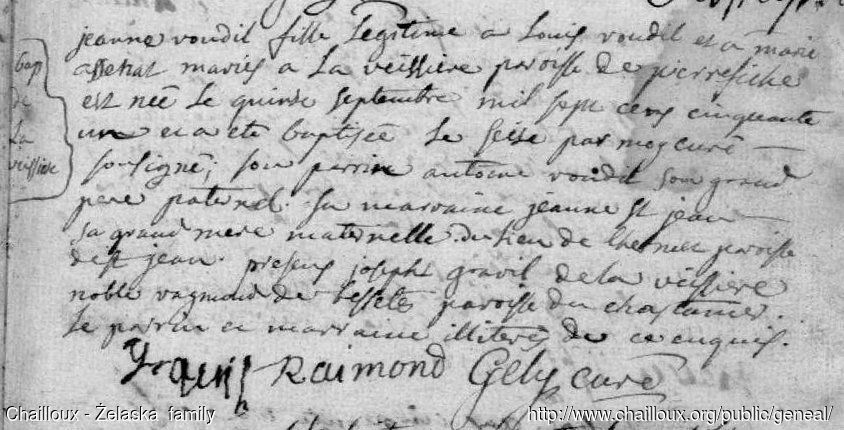 Bap
de
La
veissiere
jeanne voudil fille Legitime a Louis voudil et a marie
assenat mariés a La veissiere paroisse de pierrefiche
est née Le quinse septembre mil sept cens cinquante
un et a ete baptisée Le seise par moy curé
sousigné; son perrin antoine voudil son grand
pere paternel. sa marraine jeanne st jean
sa grand mere maternelle du lieu de paroisse
de st jean. presens joseph gravil de la veissiere
noble raymond de bessetes paroisse du chastanier.
Le parrin et marraine illiterés de ce enquis.
Raimond Gely curé
Chailloux - Żelaska family
http://www.chailloux.org/public/geneal/